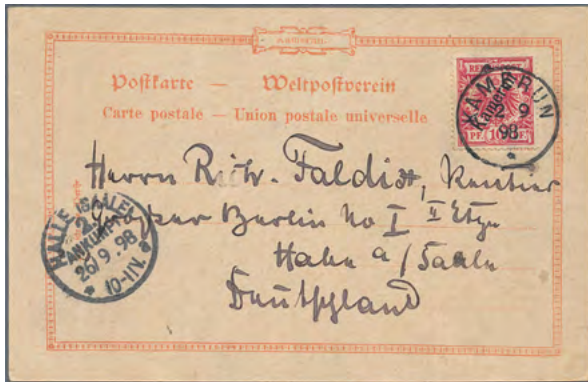 Postkarte — Weltpostverein
Carte postale — Union postale universelle
KAMERUN
9
98
Kamerun
PF. 10 PF.
Herrn Rich. Faldix, Rentier
Grosser Berlin No I II Etge
Halle a/Saale
Deutschland
HALLE (SAALE)
2
ANKUNFT
26/9.98
10-11V.